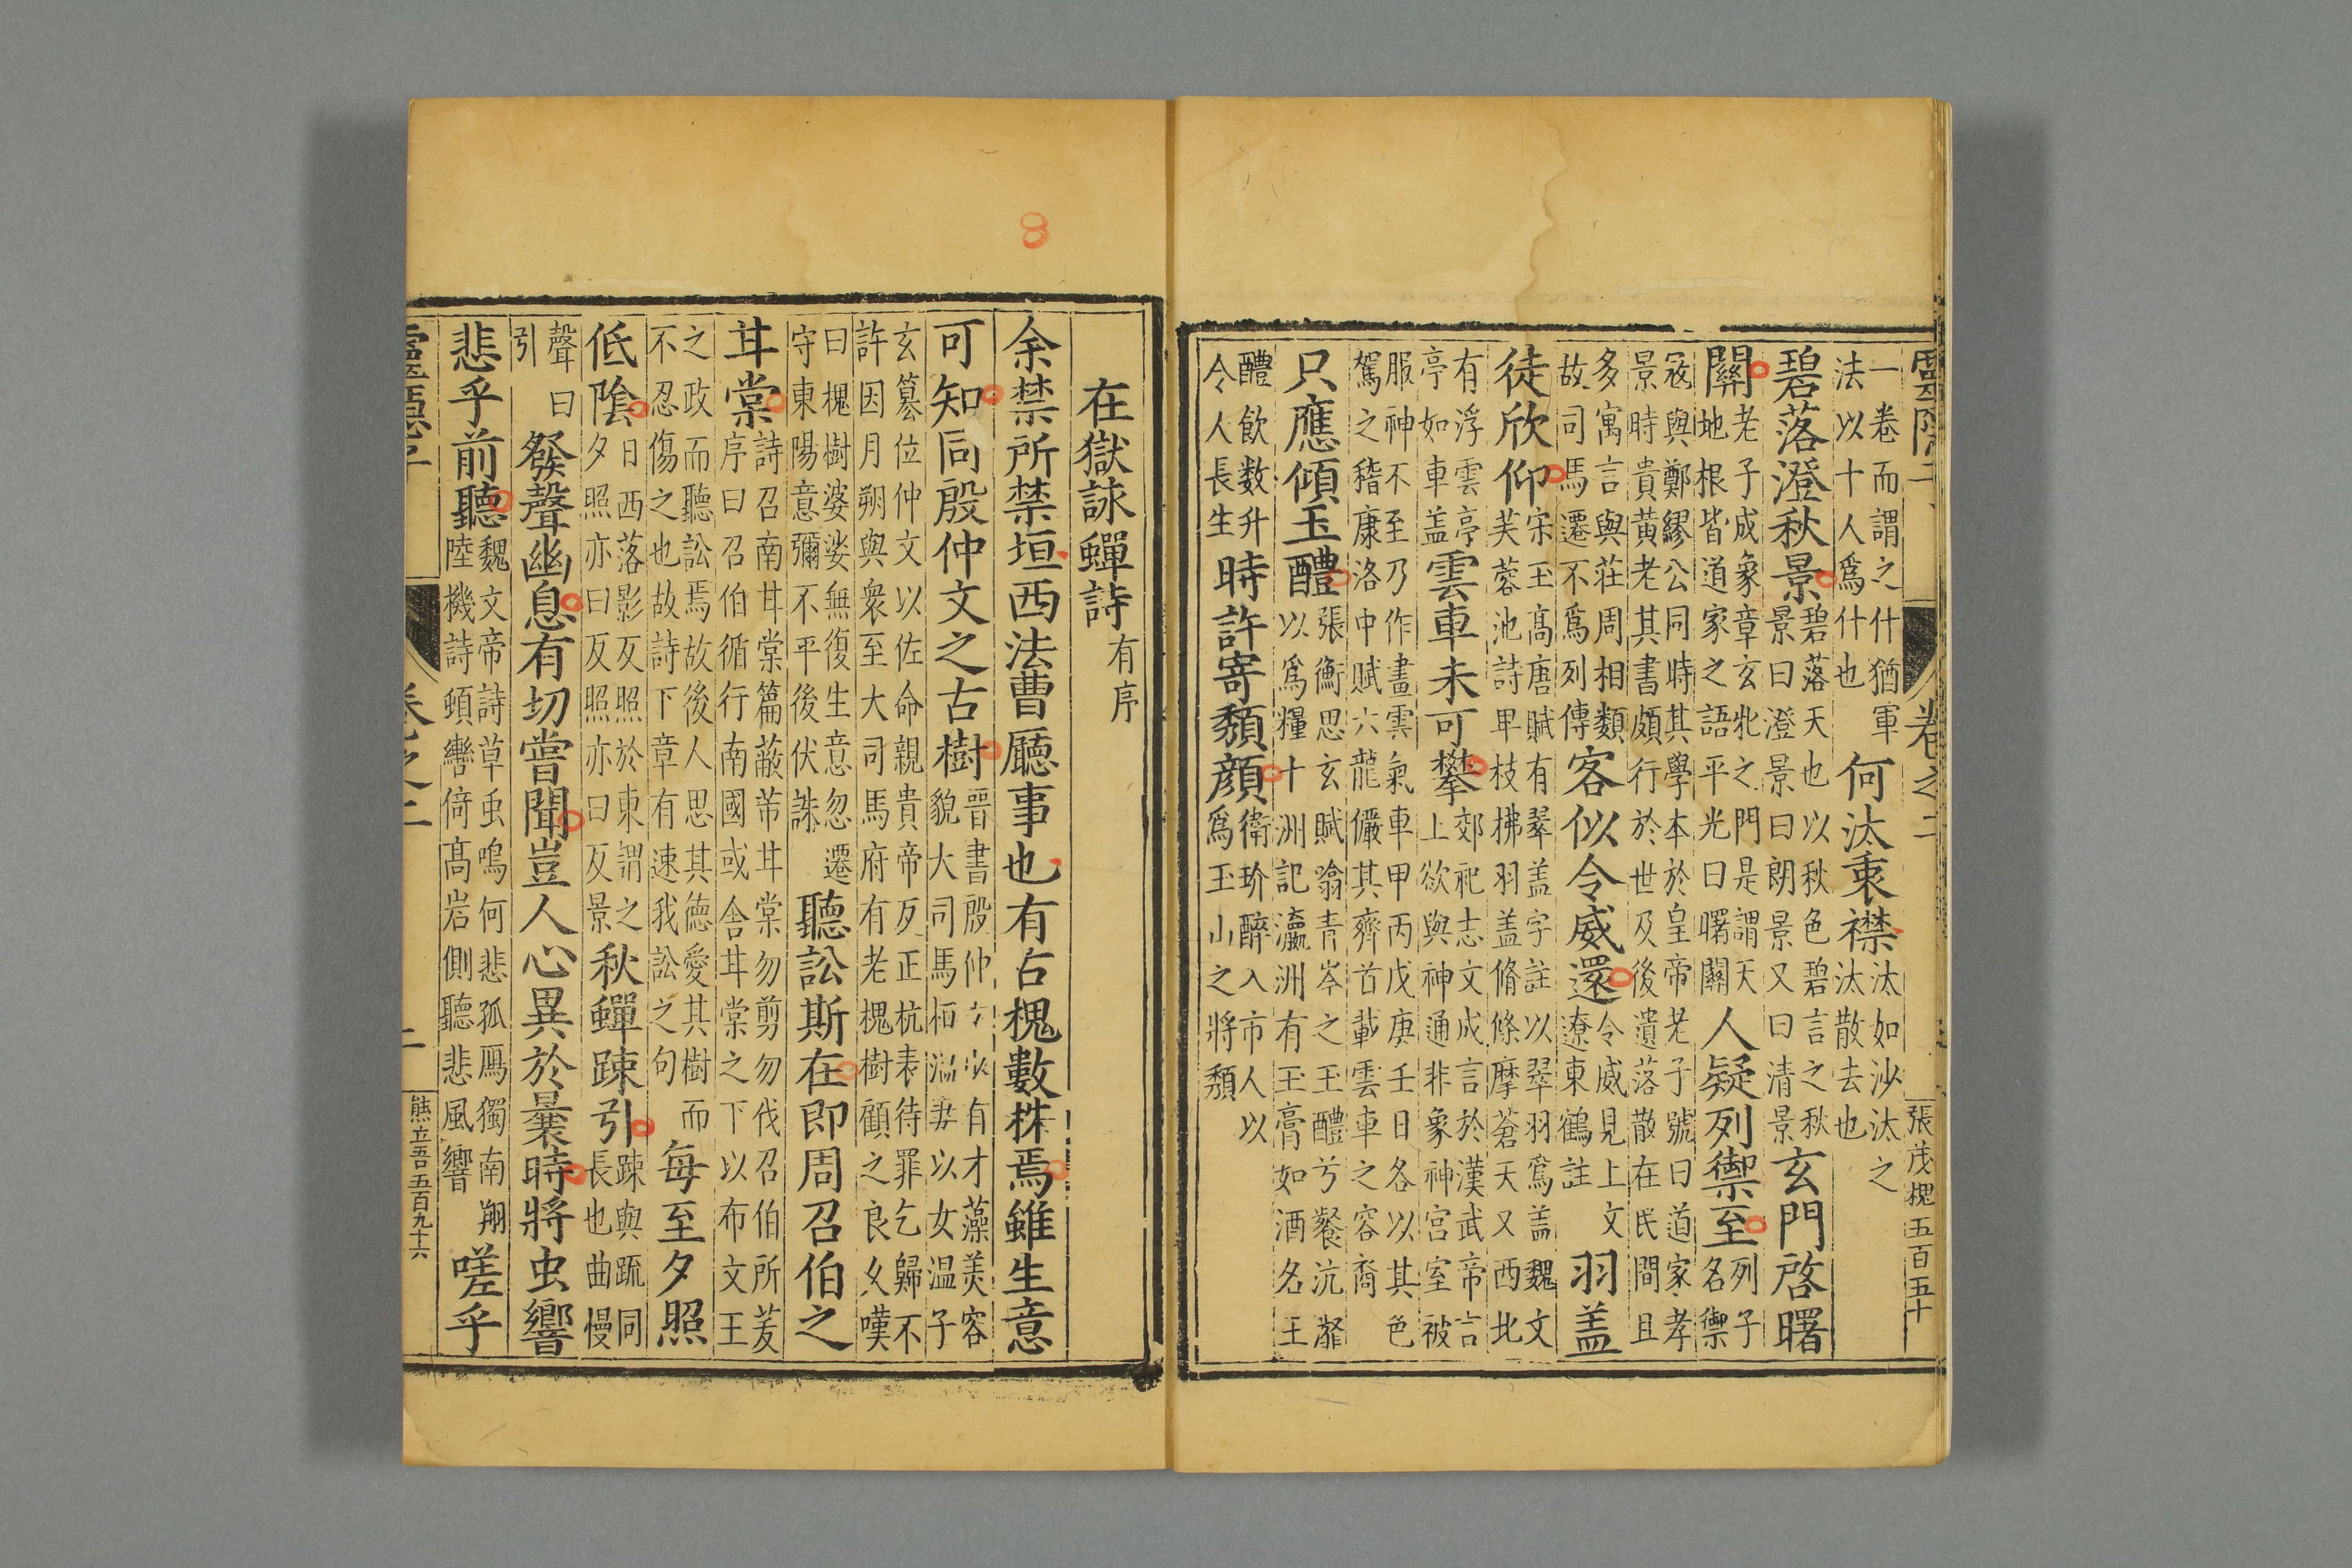 卷之二 張茂槐五百五十
一卷而謂之什猶軍法以十人爲什也何汰秉襟汰如沙汰之汰散去也
碧落澄秋景碧落天也以秋色碧言之秋景曰澄景曰朗景又曰清景玄門啓曙
關老子成象章玄牝之門是謂天地根皆道家之語平光曰曙關人疑列禦至列子名禦
寇與鄭繆公同時其學本於皇帝老子號曰道家孝景時貴黄老其書頗行於世及後遺落散在民間且
多寓言與莊周相類故司馬遷不爲列傳客似令威還令威見上文遼東鶴註羽盖
徒欣仰宋玉髙唐賦有翠盖字註以翠羽爲盖魏文芙蓉池詩卑枝拂羽盖脩條摩蒼天又西北
有浮雲亭亭如車盖雲車未可攀郊祀志文成言於漢武帝言上欲與神通非象神宫室被
服神不至乃作畫雲氣車甲丙戊庚壬日各以其色駕之稽康洛中賦六龍儼其齊首載雲車之容裔
只應傾玉醴張衡思玄賦噏青岑之玉醴兮餐沆瀣以爲糧十洲記瀛洲有玉膏如酒名玉
醴飲数升令人長生時許寄頽顔衛玠醉入市人以爲玉山之將頽
8
在獄詠蟬詩有序
余禁所禁垣西法曹廳事也有古槐數株焉雖生意
可知同殷仲文之古樹晋書殷仲文有才藻美容貌大司馬桓溫妻以女温子
玄簒位仲文以佐命親貴帝反正抗表待罪乞歸不許因月朔與衆至大司馬府有老槐樹顧之良久嘆
曰槐樹婆娑無復生意忽遷守東陽意彌不平後伏誅聽訟斯在即周召伯之
甘棠詩召南甘棠篇蔽芾甘棠勿剪勿伐召伯所茇序曰召伯循行南國或舍甘棠之下以布文王
之政而聽訟焉故後人思其德愛其樹而不忍傷之也故詩下章有速我訟之句每至夕照
低陰日西落影反照於東謂之夕照亦曰反照亦曰反景秋蟬踈引踈與疏同長也曲慢
聲曰引發聲幽息有切嘗聞豈人心異於曩時將虫響
悲乎前聽魏文帝詩草虫鳴何悲孤鴈獨南翔陸機詩頓轡倚髙岩側聽悲風響嗟乎
靈隱子 卷之二 二 熊立吾五百九十六